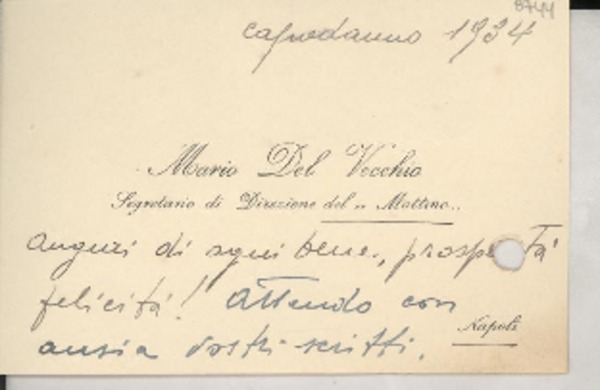 8744
capodanno 1934
Mario Del Vecchio
Segretario di Direzione del „ Mattino „
auguri di ogni bene, prosp tà
felicità! Attendo con
Napoli
ansia vostri scritti.